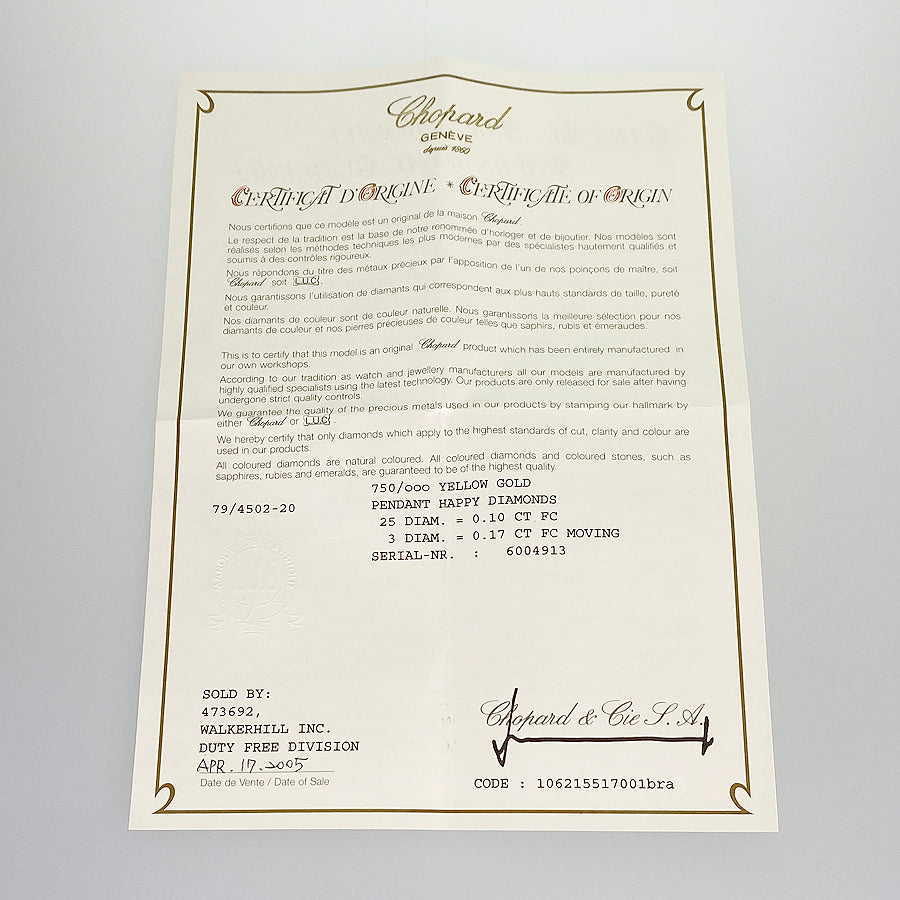 Chopard
GENÈVE
depuis 1860
CERTIFICAT D'ORIGINE * CERTIFICATE OF ORIGIN
Nous certifions que ce modèle est un original de la maison Chopard.
Le respect de la tradition est la base de notre renommée d'horloger et de bijoutier. Nos modèles sont
réalisés selon les méthodes techniques les plus modernes par des spécialistes hautement qualifiés et
soumis à des contrôles rigoureux.
Nous répondons du titre des métaux précieux par l'apposition de l'un de nos poinçons de maître, soit
Chopard soit L.U.C.
Nous garantissons l'utilisation de diamants qui correspondent aux plus hauts standards de taille, pureté
et couleur.
Nos diamants de couleur sont de couleur naturelle. Nous garantissons la meilleure sélection pour nos
diamants de couleur et nos pierres précieuses de couleur telles que saphirs, rubis et émeraudes.
This is to certify that this model is an original Chopard product which has been entirely manufactured in
our own workshops.
According to our tradition as watch and jewellery manufacturers all our models are manufactured by
highly qualified specialists using the latest technology. Our products are only released for sale after having
undergone strict quality controls.
We guarantee the quality of the precious metals used in our products by stamping our hallmark by
either Chopard or L.U.C.
We hereby certify that only diamonds which apply to the highest standards of cut, clarity and colour are
used in our products.
All coloured diamonds are natural coloured. All coloured diamonds and coloured stones, such as
sapphires, rubies and emeralds, are guaranteed to be of the highest quality.
750/ooo YELLOW GOLD
79/4502-20 PENDANT HAPPY DIAMONDS
25 DIAM. = 0.10 CT FC
3 DIAM. = 0.17 CT FC MOVING
SERIAL-NR. : 6004913
SOLD BY:
473692,
WALKERHILL INC.
DUTY FREE DIVISION
APR. 17. 2005
Date de Vente / Date of Sale
Chopard & Cie S.A.
CODE : 106215517001bra